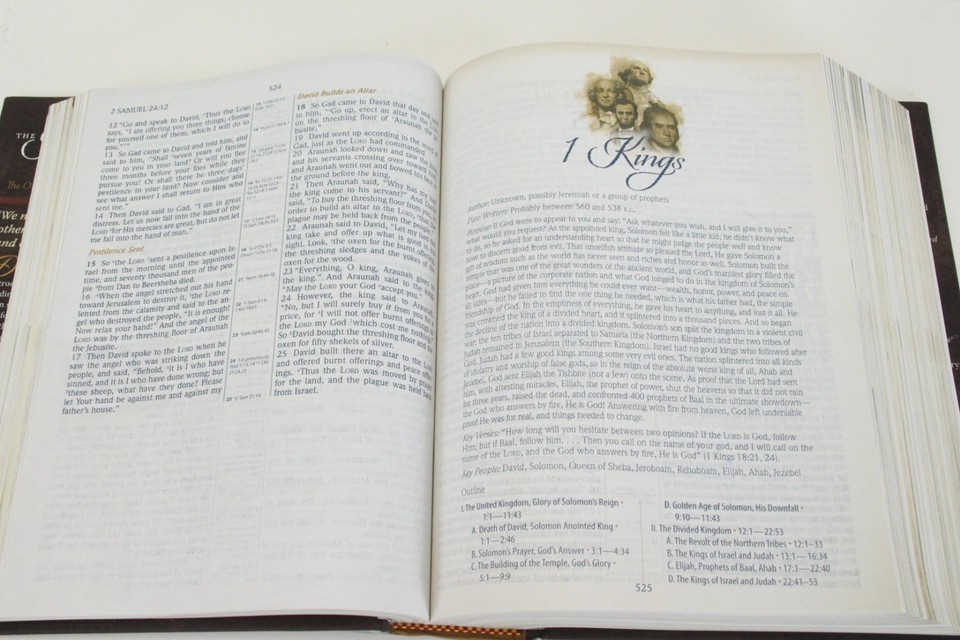 2 SAMUEL 24:12
524
12 "Go and speak to David, 'Thus the LORD
says, "I am offering you three things; choose
for yourself one of them, which I will do to
you." ' "
13 So Gad came to David and told him, and
said to him, "Shall seven years of famine
come to you in your land? Or will you flee
three months before your foes while they
pursue you? Or shall there be three days'
pestilence in your land? Now consider and
see what answer I shall return to Him who
sent me."
14 Then David said to Gad, "I am in great
distress. Let us now fall into the hand of the
LORD for His mercies are great, but do not let
me fall into the hand of man."
Pestilence Sent
15 So the LORD sent a pestilence upon Is-
rael from the morning until the appointed
time, and seventy thousand men of the peo-
ple from Dan to Beersheba died.
16 When the angel stretched out his hand
toward Jerusalem to destroy it, the LORD re-
lented from the calamity and said to the an-
gel who destroyed the people, "It is enough!
Now relax your hand!" And the angel of the
LORD was by the threshing floor of Araunah
the Jebusite.
17 Then David spoke to the LORD when he
saw the angel who was striking down the
people, and said, "Behold, it is I who have
sinned, and it is I who have done wrong; but
these sheep, what have they done? Please
let Your hand be against me and against my
father's house."
David Builds an Altar
18 So Gad came to David that day and
to him, "Go up, erect an altar to the
on the threshing floor of Araunah the
busite."
19 David went up according to the word of
Gad, just as the LORD had commanded.
20 Araunah looked down and saw the
and his servants crossing over toward
and Araunah went out and bowed his
the ground before the king.
21 Then Araunah said, "Why has my
the king come to his servant?" And
said, "To buy the threshing floor from you,
order to build an altar to the LORD,
plague may be held back from the people."
22 Araunah said to David, "Let my
king take and offer up what is good in his
sight. Look, the oxen for the burnt offering,
the threshing sledges and the yokes of the
oxen for the wood.
23 "Everything, O king, Araunah gives to
the king." And Araunah said to the
"May the LORD your God accept you."
24 However, the king said to Araunah,
"No, but I will surely buy it from you for a
price, for I will not offer burnt offerings to
the LORD my God which cost me nothing."
So David bought the threshing floor and the
oxen for fifty shekels of silver.
25 David built there an altar to the LORD
and offered burnt offerings and peace offer-
ings. Thus the LORD was moved by prayer
for the land, and the plague was held back
from Israel.
1 Kings
Author: Unknown, possibly Jeremiah or a group of prophets
Date Written: Probably between 560 and 538 B.C.
Purpose: If God were to appear to you and say: "Ask whatever you wish, and I will give it to you,"
what would you request? As the appointed king, Solomon felt like a little kid; he didn't know what
to do, so he asked for an understanding heart so that he might judge the people well and know
how to discern good from evil. That unselfish attitude so pleased the Lord, He gave Solomon a
gift of wisdom such as the world has never seen and riches and honor as well. Solomon built the
temple that was one of the great wonders of the ancient world, and God's manifest glory filled the
place—a picture of the corporate nation and what God longed to do in the kingdom of Solomon's
heart. God had given him everything he could ever want—wealth, honor, power, and peace on
all sides—but he failed to find the one thing he needed, which is what his father had, the simple
friendship of God. In the emptiness of everything, he gave his heart to anything, and lost it all. He
was crowned the king of a divided heart, and it splintered into a thousand pieces. And so began
the decline of the nation into a divided kingdom. Solomon's son split the kingdom in a violent civil
war: the ten tribes of Israel separated to Samaria (the Northern Kingdom) and the two tribes of
Judah remained in Jerusalem (the Southern Kingdom). Israel had no good kings who followed after
God. Judah had a few good kings among some very evil ones. The nation splintered into all kinds
of idolatry and worship of false gods, so in the reign of the absolute worst king of all, Ahab and
Jezebel, God sent Elijah the Tishbite (not a Jew) onto the scene. As proof that the Lord had sent
him, with attesting miracles, Elijah, the prophet of power, shut the heavens so that it did not rain
for three years, raised the dead, and confronted 400 prophets of Baal in the ultimate showdown—
the God who answers by fire, He is God! Answering with fire from heaven, God left undeniable
proof He was for real, and things needed to change.
Key Verses: "How long will you hesitate between two opinions? If the LORD is God, follow
Him; but if Baal, follow him. . . . Then you call on the name of your god, and I will call on the
name of the LORD, and the God who answers by fire, He is God" (1 Kings 18:21, 24).
Key People: David, Solomon, Queen of Sheba, Jeroboam, Rehoboam, Elijah, Ahab, Jezebel
Outline
I. The United Kingdom, Glory of Solomon's Reign •
1:1—11:43
A. Death of David, Solomon Anointed King •
1:1—2:46
B. Solomon's Prayer, God's Answer • 3:1—4:34
C. The Building of the Temple, God's Glory •
5:1—9:9
D. Golden Age of Solomon, His Downfall •
9:10—11:43
II. The Divided Kingdom • 12:1—22:53
A. The Revolt of the Northern Tribes • 12:1–33
B. The Kings of Israel and Judah • 13:1—16:34
C. Elijah, Prophets of Baal, Ahab • 17:1—22:40
D. The Kings of Israel and Judah • 22:41–53
525
THE